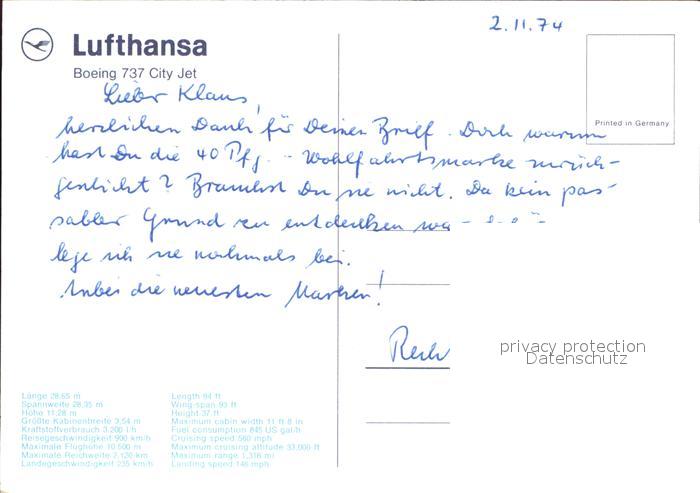 2.11.74
Lufthansa
Boeing 737 City Jet
Printed in Germany
Lieber Klaus,
herzlichen Dank für Deinen Brief. Doch warum
hast Du die 40 Pfg. - Wohlfahrtsmarke zurück-
geschickt? Brauchst Du sie nicht. Da kein pas-
sabler Grund zu entdecken war
lege ich sie nochmals bei.
Anbei die neuesten Marken!
privacy protection
Datenschutz
Länge 28,65 m
Spannweite 28,35 m
Höhe 11,28 m
Größte Kabinenbreite 3,54 m
Kraftstoffverbrauch 3.200 l/h
Reisegeschwindigkeit 900 km/h
Maximale Flughöhe 10.500 m
Maximale Reichweite 2.130 km
Landegeschwindigkeit 235 km/h
Length 94 ft
Wing span 93 ft
Height 37 ft
Maximum cabin width 11 ft 8 in
Fuel consumption 845 US gal/h
Cruising speed 560 mph
Maximum cruising altitude 33,000 ft
Maximum range 1,318 mi
Landing speed 146 mph